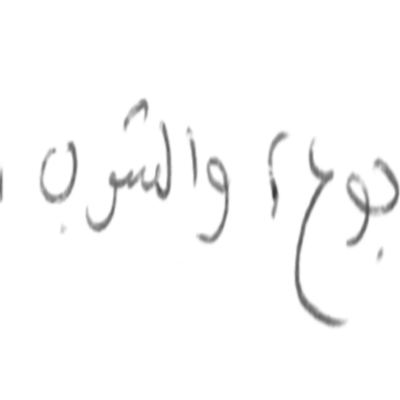 جوع ، والشرب